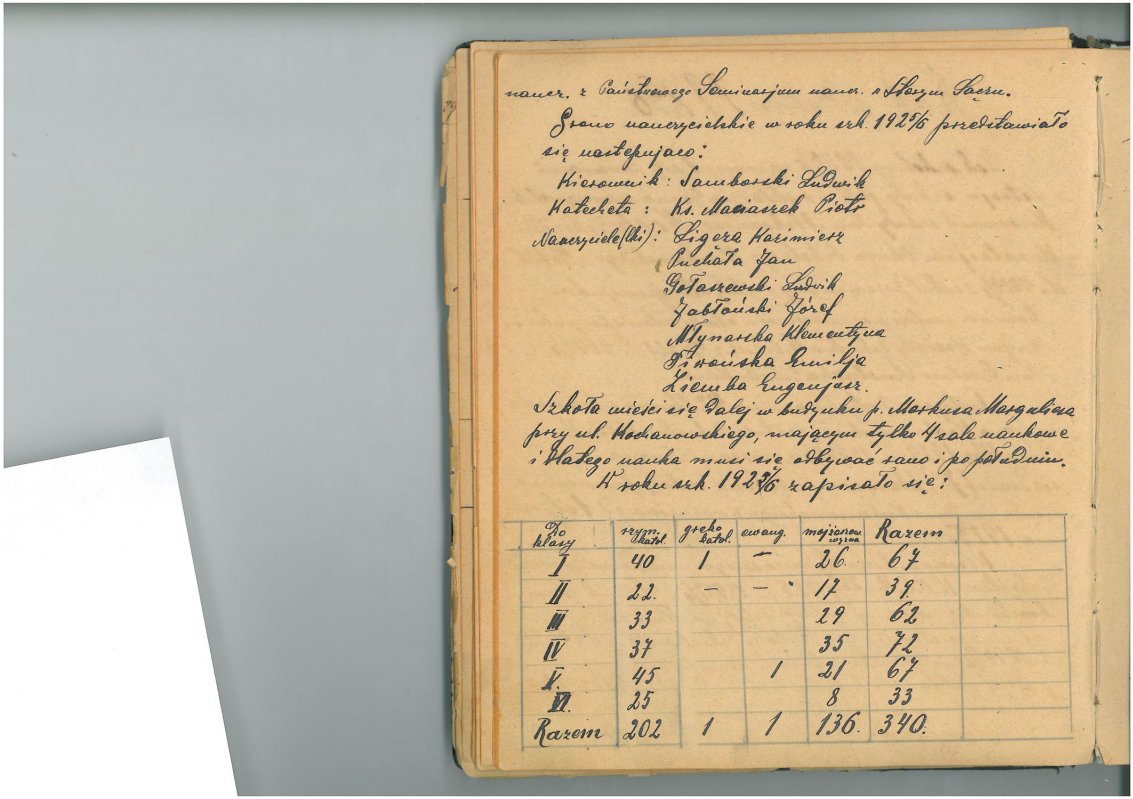 naucz. z Państwowego Seminarjum naucz. w Starym Sączu.
Grono nauczycielskie w roku szk. 1925/6 przedstawiało
się następująco:
Kierownik: Samborski Ludwik
Katecheta: Ks. Maciaszek Piotr
Nauczyciele(lki): Ligęza Kazimierz
Puchała Jan
Gołaszewski Ludwik
Jabłoński Józef
Młynarska Klementyna
Tiwońska Emilja
Ziemba Eugenjusz.
Szkoła mieści się dalej w budynku p. Markusa Marguliesa
przy ul. Kochanowskiego, mającym tylko 4 sale naukowe
i dlatego nauka musi się odbywać rano i po południu.
W roku szk. 1925/6 zapisało się:
Do klasy rzym. katol. greko katol. ewang. mojżeszow. wyzna Razem
I 40 1 – 26 67
II 22. – – 17 39.
III 33 29 62
IV 37 35 72
V. 45 1 21 67
VI. 25 8 33
Razem 202 1 1 136. 340.